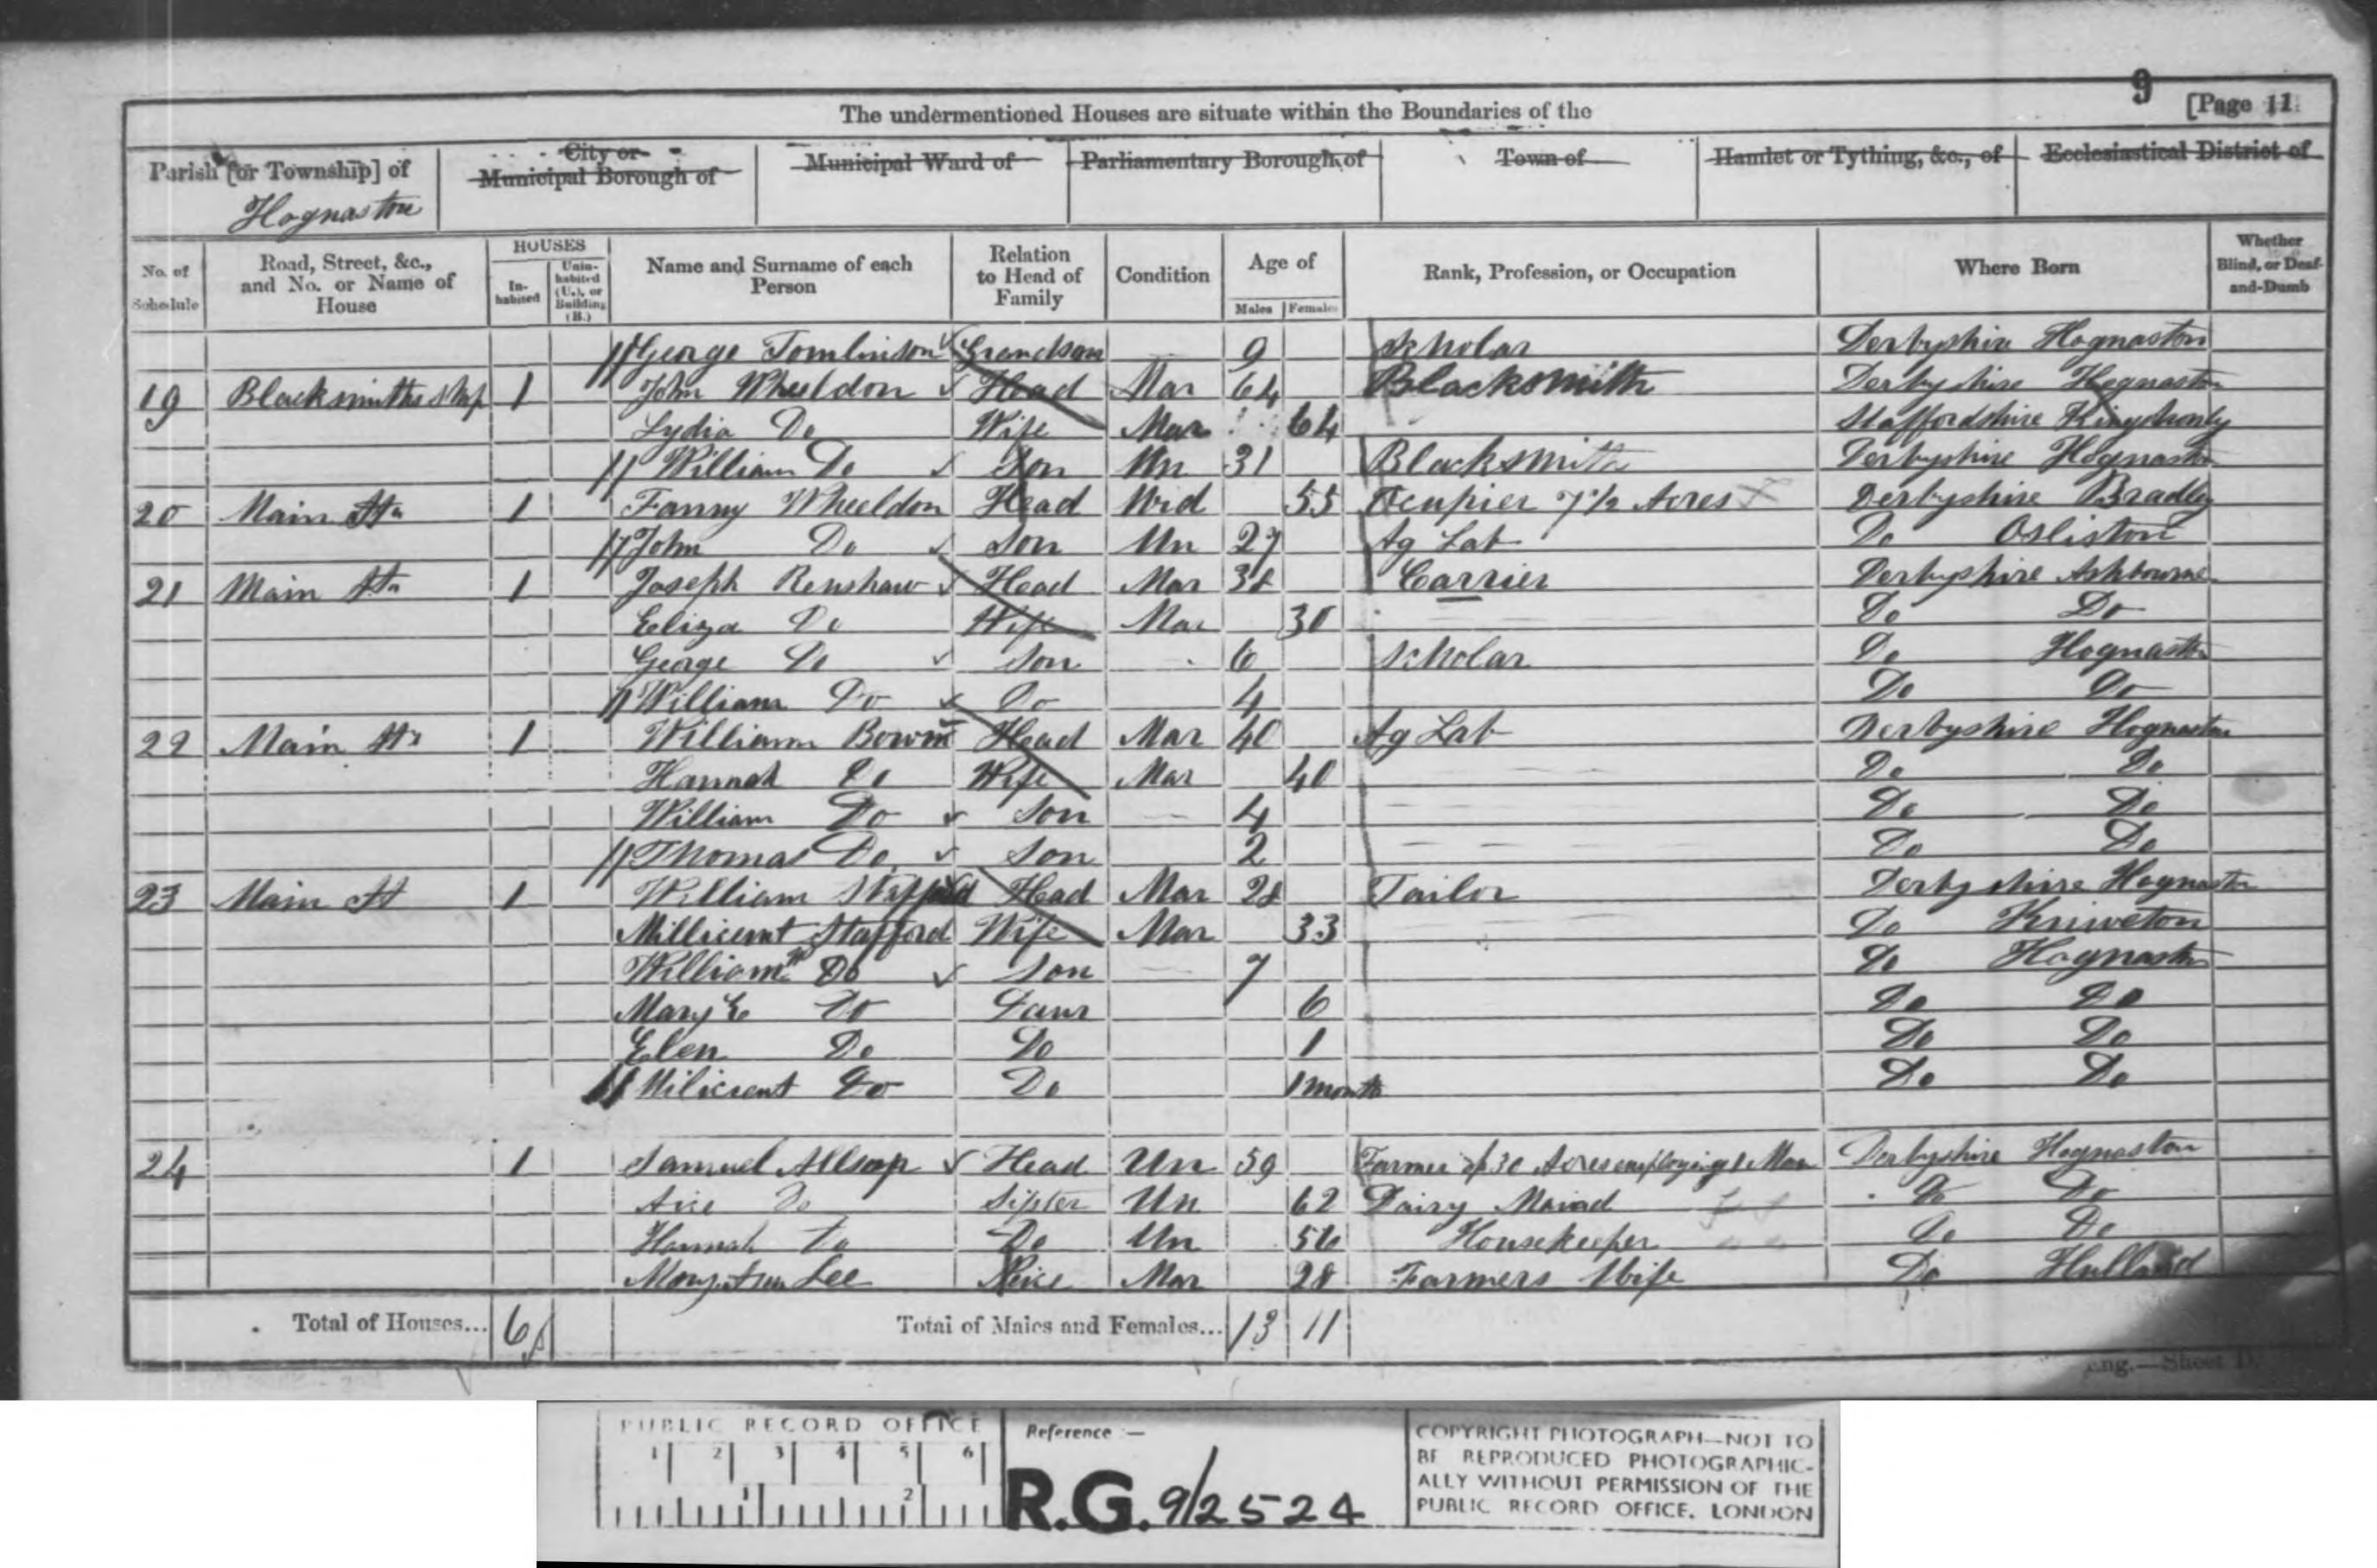 9
The undermentioned Houses are situate within the Boundaries of the [Page 11.
Parish [or Township] of City or Municipal Borough of Municipal Ward of Parliamentary Borough of Town of Hamlet or Tything, &c., of Ecclesiastical District of
Hognaston
No. of Schedule Road, Street, &c., and No. or Name of House HOUSES In-habited Unin-habited (U.), or Building (B.) Name and Surname of each Person Relation to Head of Family Condition Age of Males Females Rank, Profession, or Occupation Where Born Whether Blind, or Deaf-and-Dumb
George Tomlinson Grandson 9 Scholar Derbyshire Hognaston
19 Blacksmiths Shop 1 John Wheeldon Head Mar 64 Blacksmith Derbyshire Hognaston
Lydia Do Wife Mar 64 Staffordshire
William Do Son Un 31 Blacksmith Derbyshire Hognaston
20 Main St 1 Fanny Wheeldon Head Wid 55 Ocupier 7 1/2 Acres Derbyshire Bradley
John Do Son Un 27 Ag Lab Do Osliston
21 Main St 1 Joseph Renshaw Head Mar 38 Carrier Derbyshire Ashbourne
Eliza Do Wife Mar 30 Do Do
George Do Son 6 Scholar Do Hognaston
William Do Do 4 Do Do
22 Main St 1 William Head Mar 40 Ag Lab Derbyshire Hognaston
Hannah Do Wife Mar 40 Do Do
William Do Son 4 Do Do
Thomas Do Son 2 Do Do
23 Main St 1 William Stafford Head Mar 28 Tailor Derbyshire Hognaston
Millicent Stafford Wife Mar 33 Do Kniveton
William Do Son 7 Do Hognaston
Mary E Do Daur 6 Do Do
Elen Do Do 1 Do Do
Milicent Do Do 1 month Do Do
24 1 Samuel Allsop Head Un 59 Farmer of 30 Acres employing 1 Man Derbyshire Hognaston
Do Sister Un 62 Dairy Do Do
Hannah Do Do Un 56 Housekeeper Do Do
Lee Neice Mar 28 Farmers Wife Do Hulland
Total of Houses... 6 Total of Males and Females... 13 11
Eng.—Sheet D.
PUBLIC RECORD OFFICE
1 2 3 4 5 6
1 2
Reference :—
R.G. 9/2524
COPYRIGHT PHOTOGRAPH—NOT TO
BE REPRODUCED PHOTOGRAPHIC-
ALLY WITHOUT PERMISSION OF THE
PUBLIC RECORD OFFICE, LONDON